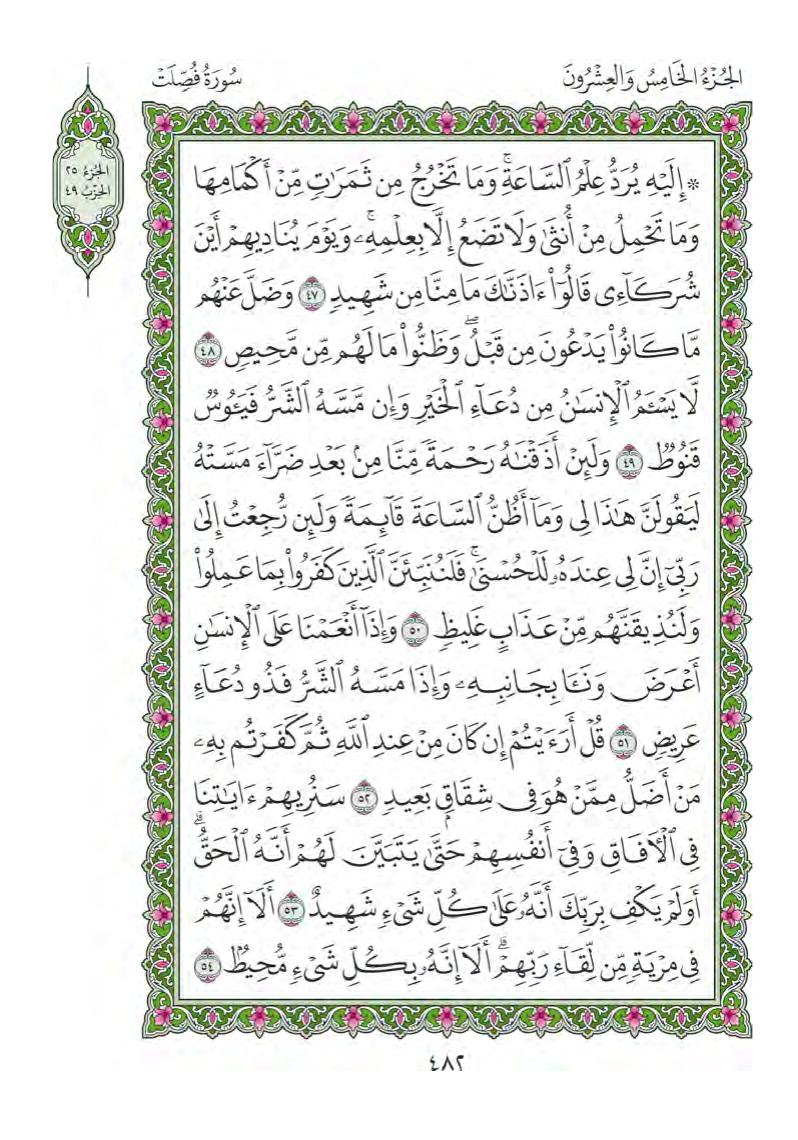 الجُزْءُ الخَامِسُ وَالعِشْرُونَ
سُورَةُ فُصِّلَتْ
الجُزءُ ٢٥
الحِزْبُ ٤٩
۞ إِلَيْهِ يُرَدُّ عِلْمُ ٱلسَّاعَةِۚ وَمَا تَخْرُجُ مِن ثَمَرَٰتٍ مِّنْ أَكْمَامِهَا
وَمَا تَحْمِلُ مِنْ أُنثَىٰ وَلَا تَضَعُ إِلَّا بِعِلْمِهِۦۚ وَيَوْمَ يُنَادِيهِمْ أَيْنَ
شُرَكَآءِى قَالُوٓا۟ ءَاذَنَّٰكَ مَا مِنَّا مِن شَهِيدٍ ٤٧ وَضَلَّ عَنْهُم
مَّا كَانُوا۟ يَدْعُونَ مِن قَبْلُۖ وَظَنُّوا۟ مَا لَهُم مِّن مَّحِيصٍ ٤٨
لَّا يَسْـَٔمُ ٱلْإِنسَٰنُ مِن دُعَآءِ ٱلْخَيْرِ وَإِن مَّسَّهُ ٱلشَّرُّ فَيَـُٔوسٌ
قَنُوطٌ ٤٩ وَلَئِنْ أَذَقْنَٰهُ رَحْمَةً مِّنَّا مِنۢ بَعْدِ ضَرَّآءَ مَسَّتْهُ
لَيَقُولَنَّ هَٰذَا لِى وَمَآ أَظُنُّ ٱلسَّاعَةَ قَآئِمَةً وَلَئِن رُّجِعْتُ إِلَىٰ
رَبِّىٓ إِنَّ لِى عِندَهُۥ لَلْحُسْنَىٰۚ فَلَنُنَبِّئَنَّ ٱلَّذِينَ كَفَرُوا۟ بِمَا عَمِلُوا۟
وَلَنُذِيقَنَّهُم مِّنْ عَذَابٍ غَلِيظٍ ٥٠ وَإِذَآ أَنْعَمْنَا عَلَى ٱلْإِنسَٰنِ
أَعْرَضَ وَنَـَٔا بِجَانِبِهِۦ وَإِذَا مَسَّهُ ٱلشَّرُّ فَذُو دُعَآءٍ
عَرِيضٍ ٥١ قُلْ أَرَءَيْتُمْ إِن كَانَ مِنْ عِندِ ٱللَّهِ ثُمَّ كَفَرْتُم بِهِۦ
مَنْ أَضَلُّ مِمَّنْ هُوَ فِى شِقَاقٍۭ بَعِيدٍ ٥٢ سَنُرِيهِمْ ءَايَٰتِنَا
فِى ٱلْـَٔافَاقِ وَفِىٓ أَنفُسِهِمْ حَتَّىٰ يَتَبَيَّنَ لَهُمْ أَنَّهُ ٱلْحَقُّۗ
أَوَلَمْ يَكْفِ بِرَبِّكَ أَنَّهُۥ عَلَىٰ كُلِّ شَىْءٍ شَهِيدٌ ٥٣ أَلَآ إِنَّهُمْ
فِى مِرْيَةٍ مِّن لِّقَآءِ رَبِّهِمْۗ أَلَآ إِنَّهُۥ بِكُلِّ شَىْءٍ مُّحِيطٌۢ ٥٤
٤٨٢